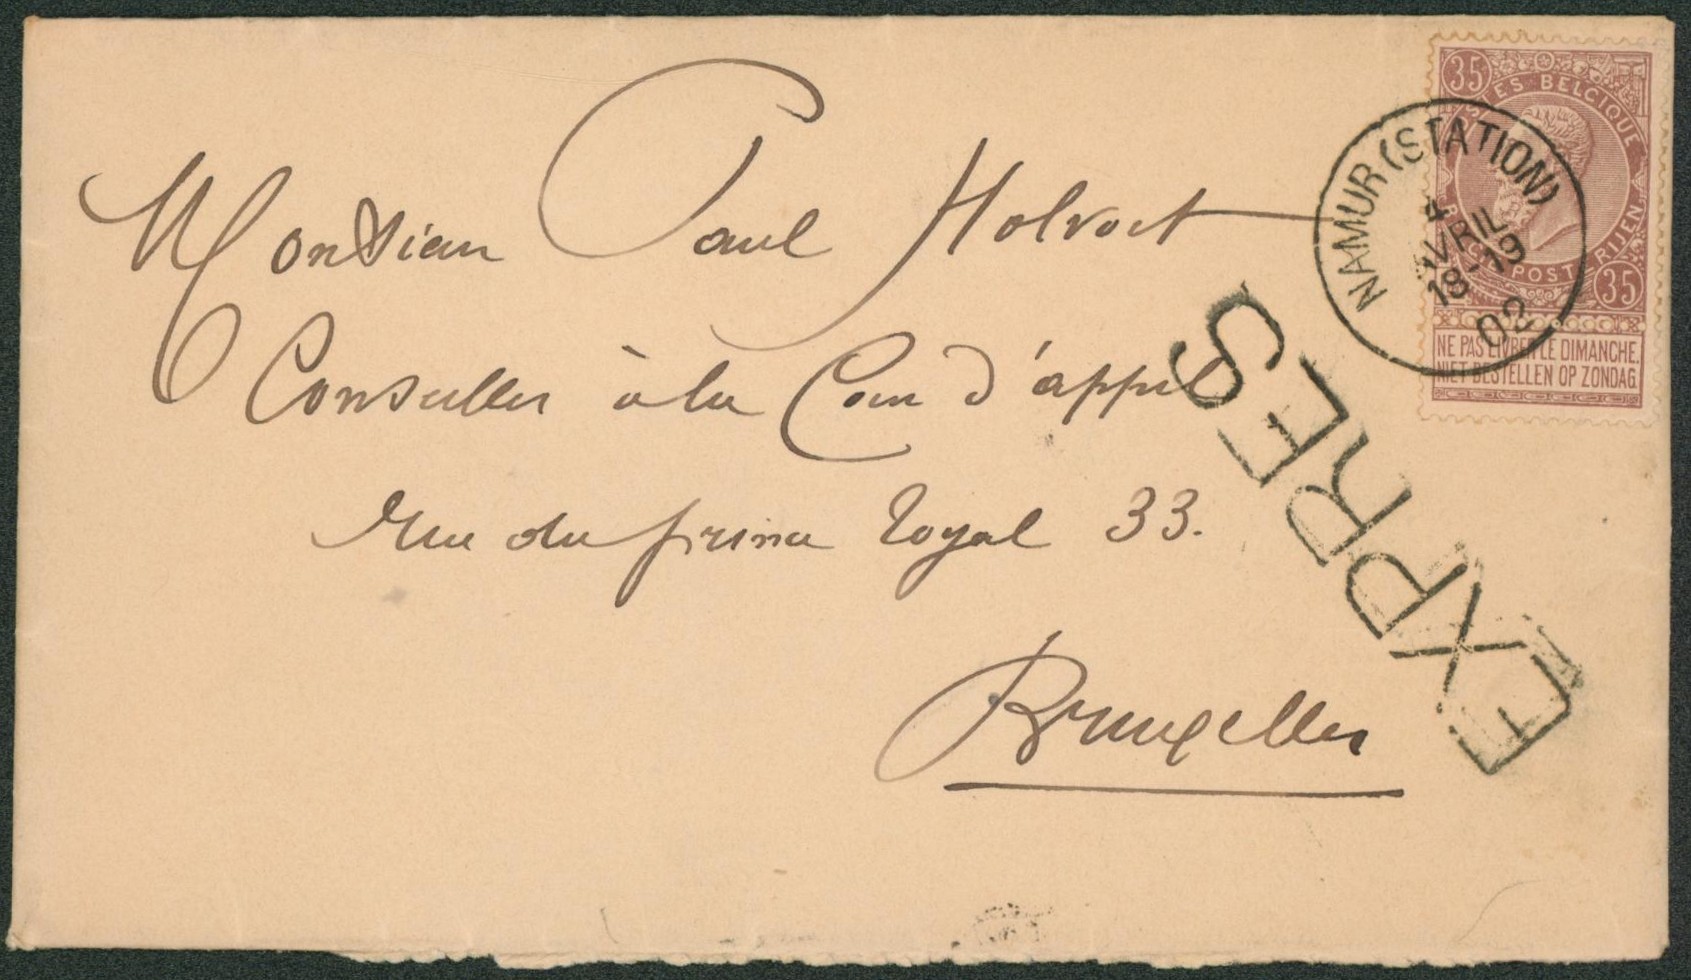 Monsieur Paul Holvoet
Conseiller à la Cour d'appel
rue du prince royal 33.
Bruxelles
EXPRES
NAMUR (STATION)
4
AVRIL
18-19
02
35
POSTES BELGIQUE
BELGIE POSTERIJEN
35
NE PAS LIVRER LE DIMANCHE.
NIET BESTELLEN OP ZONDAG.